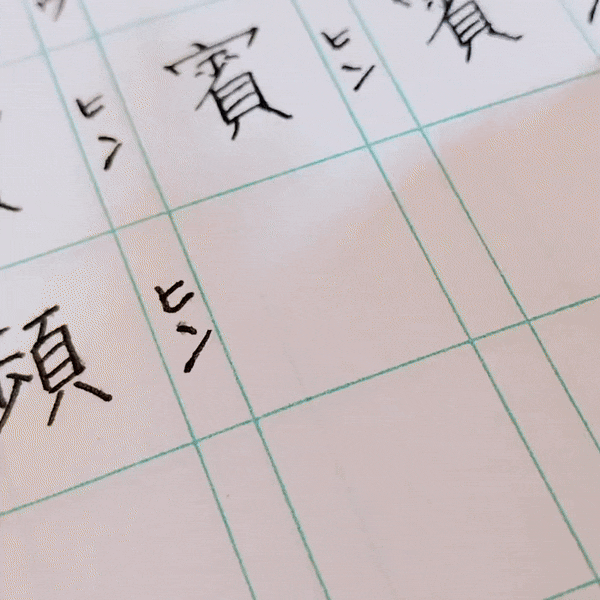 賓 ヒン
賓 ヒン
頻 ヒン